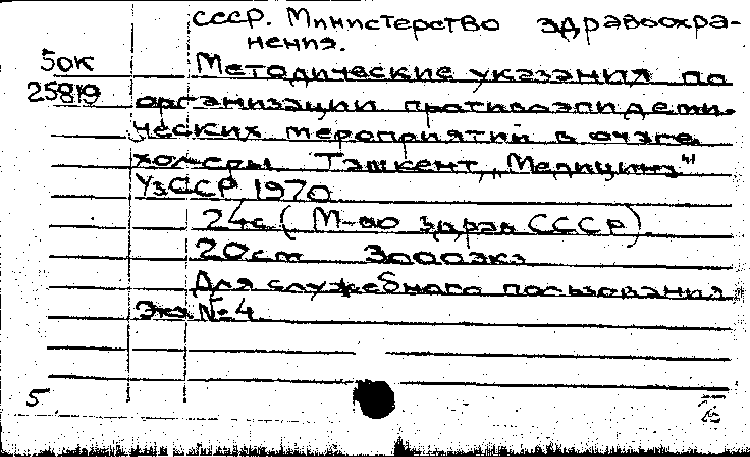 СССР. Министерство здравоохра-
нения.
50к Методические указания по
25819 организации противоэпидеми-
ческих мероприятий в очаге
холеры Ташкент, „Медицина"
УзССР 1970
24с (М-во здрав СССР).
20см 3000экз
Для служебного пользования
Экз №4
5